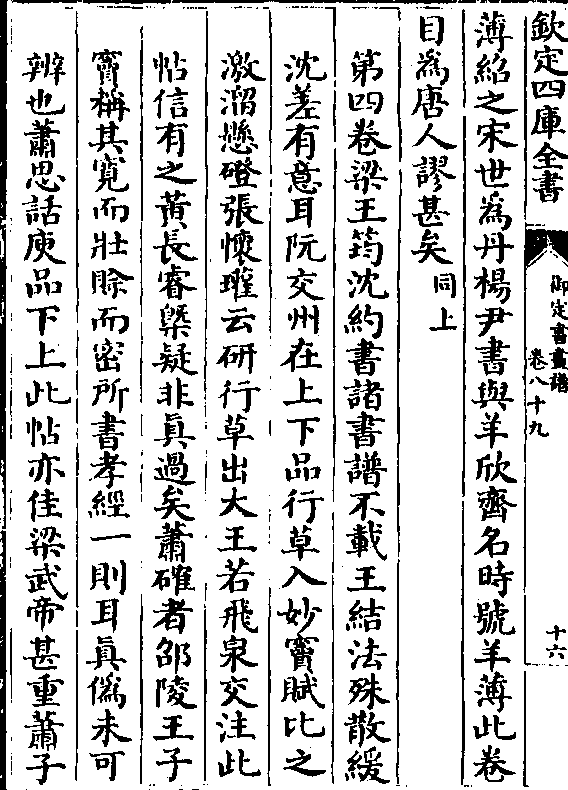 欽定四庫全書
御定書畫譜
卷八十九
十六
薄紹之宋世為丹楊尹書與羊欣齊名時號羊薄此卷
目為唐人謬甚矣同上
第四卷梁王筠沈約書諸書譜不載王結法殊散緩
沈差有意耳阮交州在上下品行草入妙竇賦比之
激溜懸磴張懷瓘云研行草出大王若飛泉交注此
帖信有之黄長睿槩疑非真過矣蕭確者邵陵王子
竇稱其寬而壯賖而密所書孝經一則耳真僞未可
辨也蕭思話庾品下上此帖亦佳梁武帝甚重蕭子